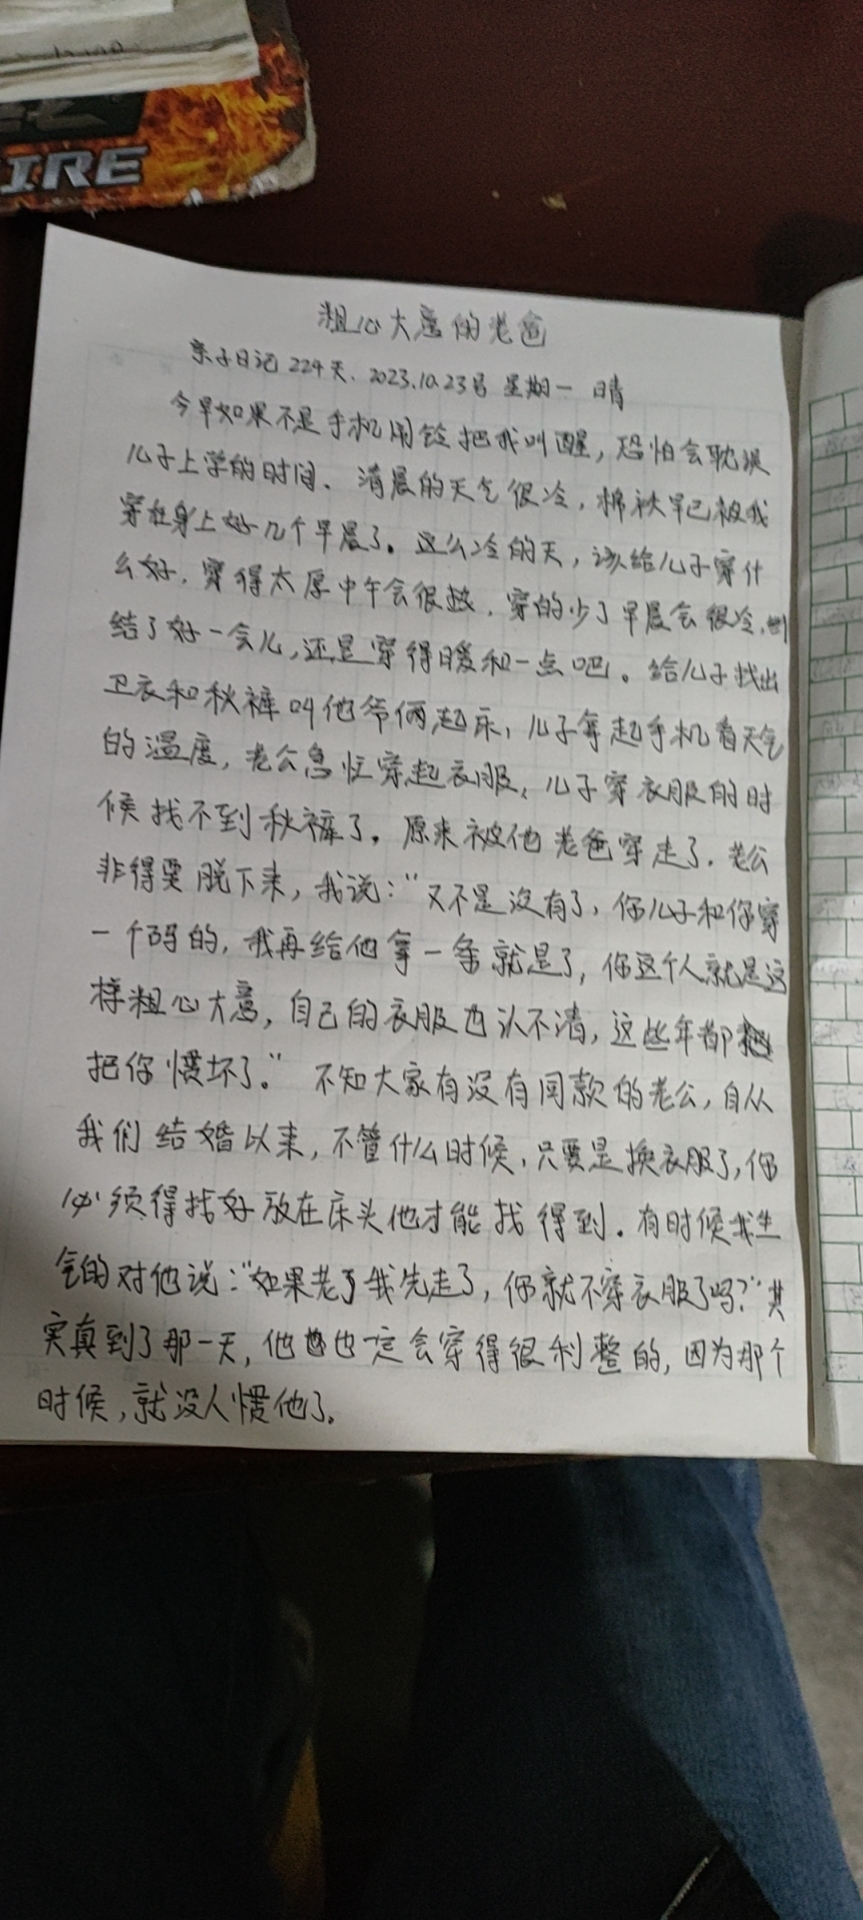 IRE
粗心大意的老爸
亲子日记224天. 2023.10.23号 星期一 晴
今早如果不是手机闹铃把我叫醒，恐怕会耽误
儿子上学的时间。清晨的天气很冷，棉袄早已被我
穿在身上好几个早晨了。这么冷的天，该给儿子穿什
么好，穿得太厚中午会很热，穿的少了早晨会很冷，
结了好一会儿，还是穿得暖和一点吧。给儿子找出
卫衣和秋裤叫他爷俩起床，儿子拿起手机看天气
的温度，老公急忙穿起衣服，儿子穿衣服的时
候找不到秋裤了。原来被他老爸穿走了。老公
非得要脱下来，我说：“又不是没有了，你儿子和你穿
一个码的，我再给他拿一条就是了，你这个人就是这
样粗心大意，自己的衣服也认不清，这些年都
把你惯坏了。”不知大家有没有同款的老公，自从
我们结婚以来，不管什么时候，只要是换衣服了，你
必须得找好放在床头他才能找得到。有时候我生
气的对他说：“如果老了我先走了，你就不穿衣服了吗？”其
实真到了那一天，他也一定会穿得很利整的，因为那个
时候，就没人惯他了。